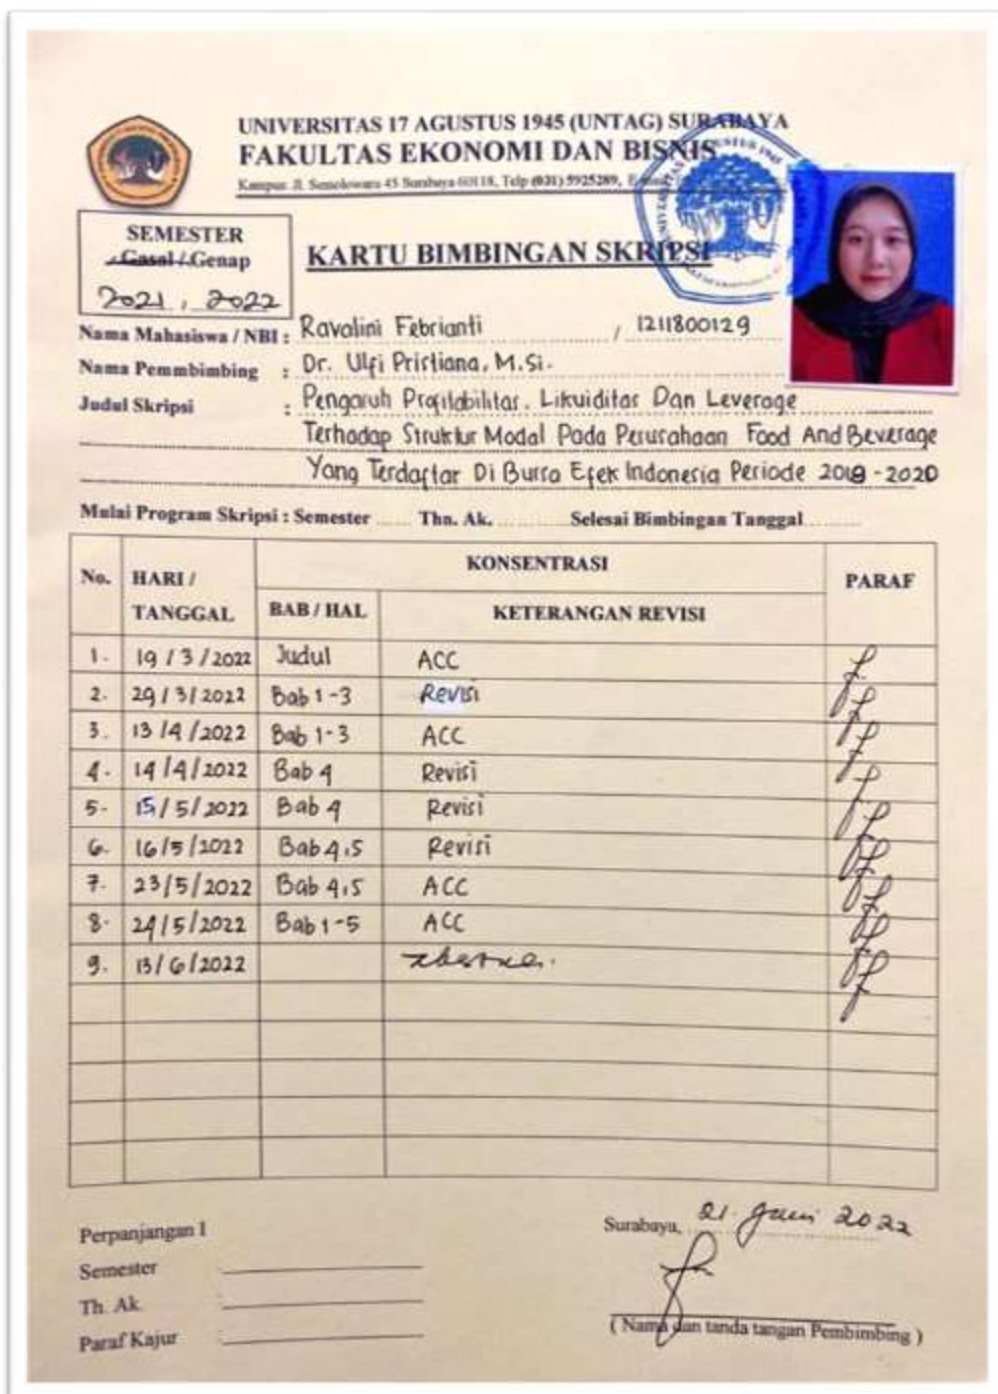 UNIVERSITAS 17 AGUSTUS 1945 (UNTAG) SURABAYA
FAKULTAS EKONOMI DAN BISNIS
Kampus: Jl. Semolowaru 45 Surabaya 60118, Telp (031) 5925289,
SEMESTER
Gasal / Genap
2021 , 2022
KARTU BIMBINGAN SKRIPSI
Nama Mahasiswa / NBI : Ravalini Febrianti / 1211800129
Nama Pemmbimbing : Dr. Ulfi Pristiana, M.Si.
Judul Skripsi : Pengaruh Profilabilitas, Likuiditas Dan Leverage
Terhadap Struktur Modal Pada Perusahaan Food And Beverage
Yang Terdaftar Di Bursa Efek Indonesia Periode 2018 - 2020
Mulai Program Skripsi : Semester ...... Thn. Ak. ............ Selesai Bimbingan Tanggal ..........
No. HARI / TANGGAL KONSENTRASI PARAF
BAB / HAL KETERANGAN REVISI
1. 19 / 3 / 2022 Judul ACC
2. 29 / 3 / 2022 Bab 1-3 Revisi
3. 13 / 4 / 2022 Bab 1-3 ACC
4. 14 / 4 / 2022 Bab 4 Revisi
5. 15 / 5 / 2022 Bab 4 Revisi
6. 16 / 5 / 2022 Bab 4,5 Revisi
7. 23 / 5 / 2022 Bab 4,5 ACC
8. 24 / 5 / 2022 Bab 1-5 ACC
9. 13 / 6 / 2022
Perpanjangan I
Semester
Th. Ak.
Paraf Kajur
Surabaya, 21 Juni 2022
( Nama dan tanda tangan Pembimbing )